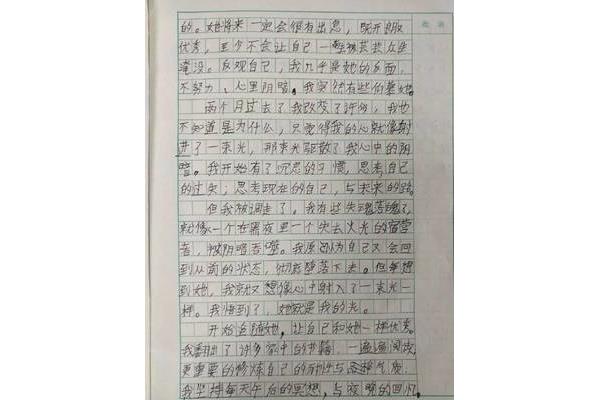 的。她将来一定会很有出息，既开朗又
优秀，至少不会让自己一辈被芸芸众生
淹没。反观自己，我几乎是她的反面，
不努力、心里阴暗。我突然有些怕她。
两个月过去了我改变了许多，我也
不知道是为什么，只觉得我的心就像射
进了一束光，那束光驱散了我心中的阴
暗。我开始有了沉思的习惯，思考自己
的过失；思考现在的自己，与未来的路。
但我被调走了。我有些失魂落魄了，
就像一个在黑夜里一个失去火光的宿营
者，被阴暗吞噬。我原以为自己又会回
到从前的状态，彻底堕落下去。但每想
到她，我就又想像心中射入了一束光一
样。我悟到了，她就是我的光。
开始追随她，让自己和她一样优秀。
我翻出了许多家中的书籍，一遍遍阅读，
更重要的修炼自己的与品格气质，
我坚持每天午后的冥想，与夜晚的回忆，